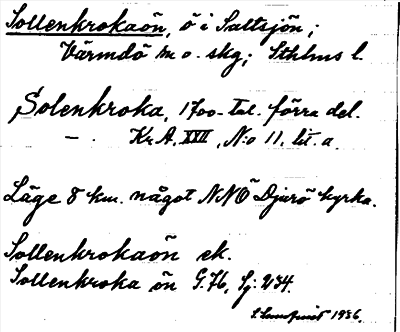 Sollenkrokaön, ö i Saltsjön;
Värmdö m o. skg; Sthlms l.
Solenkroka, 1700-tal. förra del.
— . Kr. A. XXII, N:o 11, lit. a.
Läge 8 km. något NNÖ Djurö kyrka.
Sollenkrokaön ek.
Sollenkroka ön G. 76, Sj: V34.
1936.